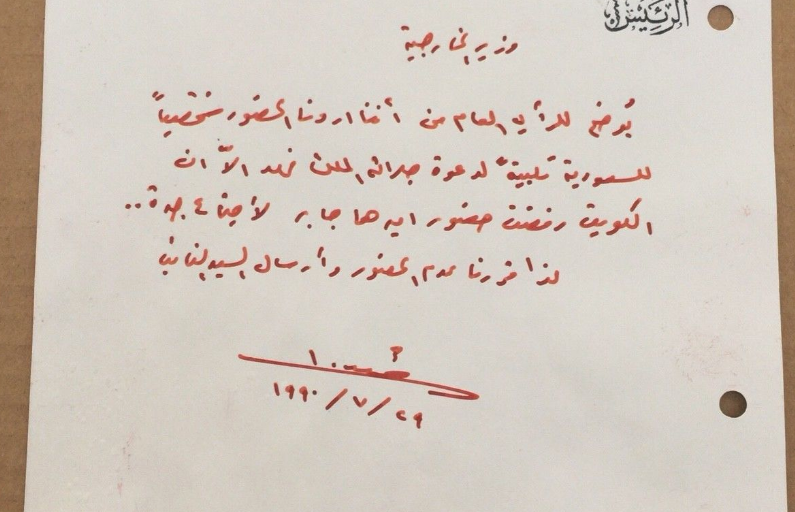 الرئيس
وزير الخارجية
يُوضح للرأي العام من أننا اردنا الحضور شخصياً
للسعودية تلبيةً لدعوة جلالة الملك فهد الاّ ان
الكويت رفضت حضور اميرها جابر لأجتماع جدة..
لذا قررنا عدم الحضور وأرسال السيد النائب
١٩٩٠/٧/٢٩